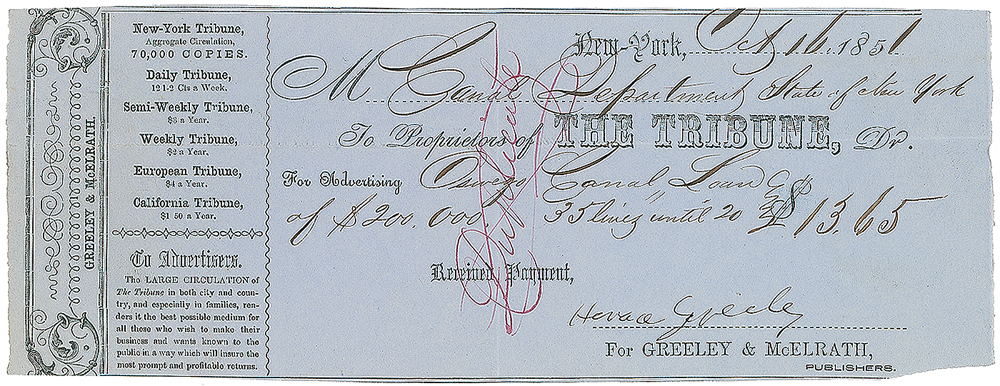 GREELEY & McELRATH.
New-York Tribune,
Aggregate Circulation,
70,000 COPIES.
Daily Tribune,
12 1-2 Cts a Week.
Semi-Weekly Tribune,
$3 a Year.
Weekly Tribune,
$2 a Year.
European Tribune,
$4 a Year.
California Tribune,
$1 50 a Year.
To Advertisers.
The LARGE CIRCULATION of
The Tribune in both city and coun-
try, and especially in families, ren-
ders it the best possible medium for
all those who wish to make their
business and wants known to the
public in a way which will insure the
most prompt and profitable returns.
New-York, Oct 16. 1851
M Canal Department State of New York
To Proprietors of THE TRIBUNE, Dr.
For Advertising Oswego Canal Loan
of $200.000 35 lines until 20 $13.65
Duplicate
Received Payment,
Horace Greeley
For GREELEY & McELRATH,
PUBLISHERS.